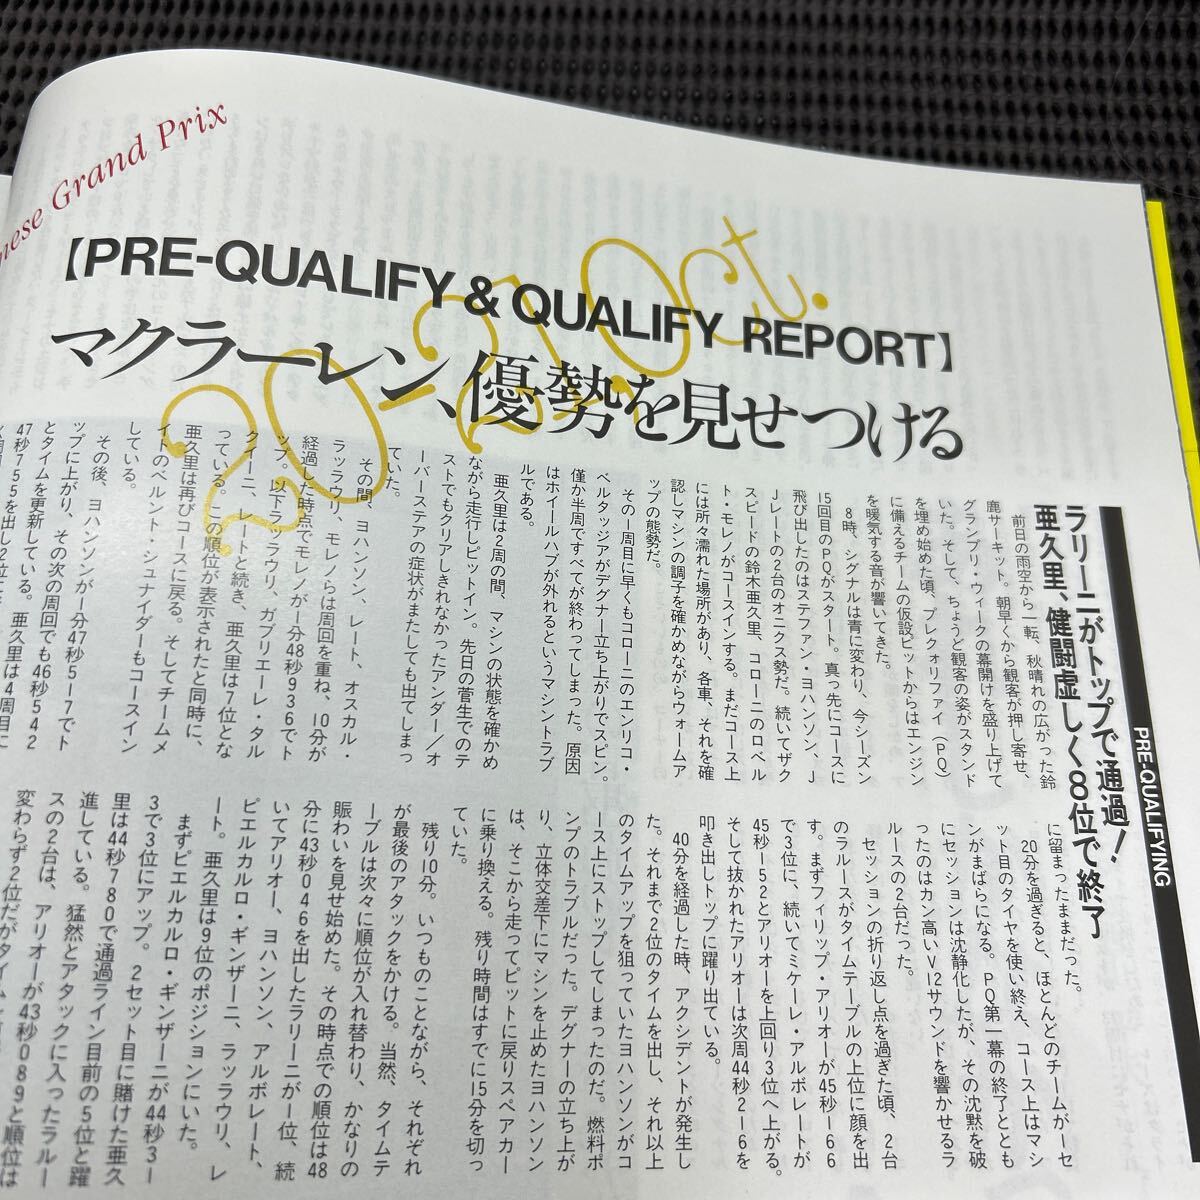 nese Grand Prix
20-21 Oct.
【PRE-QUALIFY & QUALIFY REPORT】
マクラーレン、優勢を見せつける
PRE-QUALIFYING
ラリーニがトップで通過！
亜久里、健闘虚しく8位で終了
前日の雨空から一転、秋晴れの広がった鈴
鹿サーキット。朝早くから観客が押し寄せ、
グランプリ・ウィークの幕開けを盛り上げて
いた。そして、ちょうど観客の姿がスタンド
を埋め始めた頃、プレクォリファイ（PQ）
に備えるチームの仮設ピットからはエンジン
を暖気する音が響いてきた。
8時、シグナルは青に変わり、今シーズン
15回目のPQがスタート。真っ先にコースに
飛び出したのはステファン・ヨハンソン、J
Jレートの2台のオニクス勢だ。続いてザク
スピードの鈴木亜久里、コローニのロベル
ト・モレノがコースインする。まだコース上
には所々濡れた場所があり、各車、それを確
認しマシンの調子を確かめながらウォームア
ップの態勢だ。
その一周目に早くもコローニのエンリコ・
ベルタッジアがデグナー立ち上がりでスピン。
僅か半周ですべてが終わってしまった。原因
はホイールハブが外れるというマシントラブ
ルである。
亜久里は2周の間、マシンの状態を確かめ
ながら走行しピットイン。先日の菅生でのテ
ストでもクリアしきれなかったアンダー/オ
ーバーステアの症状がまたしても出てしまっ
ていた。
その間、ヨハンソン、レート、オスカル・
ラッラウリ、モレノらは周回を重ね、10分が
経過した時点でモレノが1分48秒936でト
ップ。以下ラッラウリ、ガブリエーレ・タル
クィーニ、レートと続き、亜久里は7位とな
っている。この順位が表示されたと同時に、
亜久里は再びコースに戻る。そしてチームメ
イトのベルント・シュナイダーもコースイン
している。
その後、ヨハンソンが1分47秒517でト
ップに上がり、その次の周回でも46秒542
とタイムを更新している。亜久里は4周目に
47秒755を出し2位に
に留まったままだった。
20分を過ぎると、ほとんどのチームが一セ
ット目のタイヤを使い終え、コース上はマシ
ンがまばらになる。PQ第一幕の終了ととも
にセッションは沈静化したが、その沈黙を破
ったのはカン高いV12サウンドを響かせるラ
ルースの2台だった。
セッションの折り返し点を過ぎた頃、2台
のラルースがタイムテーブルの上位に顔を出
す。まずフィリップ・アリオーが45秒166
で3位に、続いてミケーレ・アルボレートが
45秒152とアリオーを上回り3位へ上がる。
そして抜かれたアリオーは次周44秒216を
叩き出しトップに躍り出ている。
40分を経過した時、アクシデントが発生し
た。それまで2位のタイムを出し、それ以上
のタイムアップを狙っていたヨハンソンがコ
ース上にストップしてしまったのだ。燃料ポ
ンプのトラブルだった。デグナーの立ち上が
り、立体交差下にマシンを止めたヨハンソン
は、そこから走ってピットに戻りスペアカー
に乗り換える。残り時間はすでに15分を切っ
ていた。
残り10分。いつものことながら、それぞれ
が最後のアタックをかける。当然、タイムテ
ーブルは次々に順位が入れ替わり、かなりの
賑わいを見せ始めた。その時点での順位は48
分に43秒046を出したラリーニが1位、続
いてアリオー、ヨハンソン、アルボレート、
ピエルカルロ・ギンザーニ、ラッラウリ、レ
ート。亜久里は9位のポジションにいた。
まずピエルカルロ・ギンザーニが44秒31
3で3位にアップ。2セット目に賭けた亜久
里は44秒780で通過ライン目前の5位と躍
進している。猛然とアタックに入ったラルー
スの2台は、アリオーが43秒089と順位は
変わらず2位だがタイム